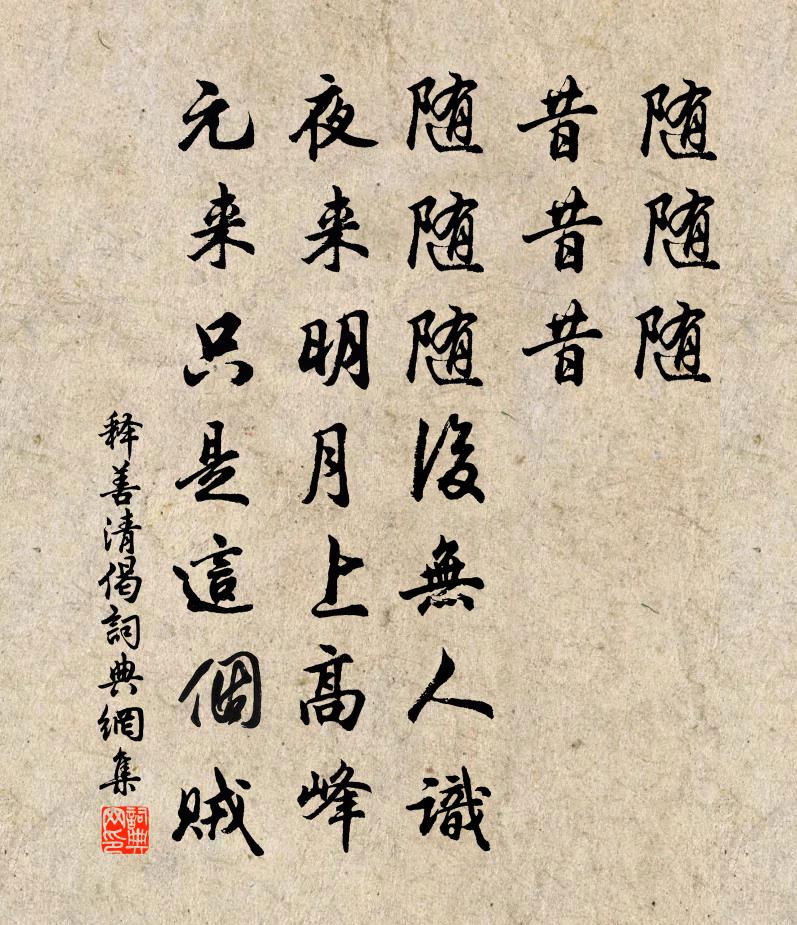 随随随
昔昔昔
随随随後無人識
夜来明月上高峰
元来只是這個賊
释善清偈詞典網集
詞典網印